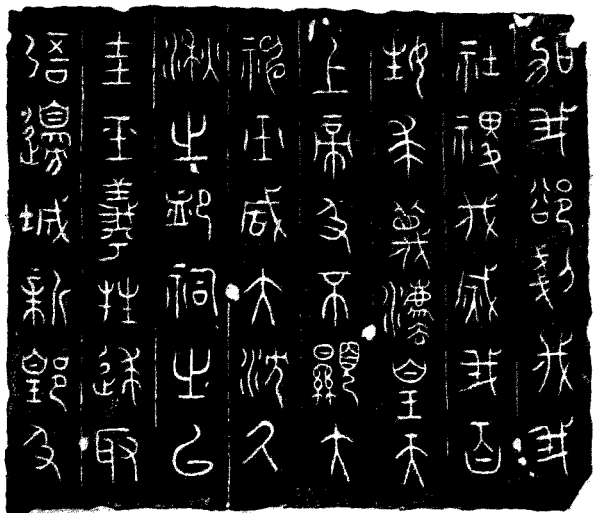 加我欲剗伐我
社稷伐烕我百
姓求蔑灋皇天
上帝及不顯大
神巫咸大沈久
湫之卹祠之以
圭玉羲牲逑取
吾邊城新郢及